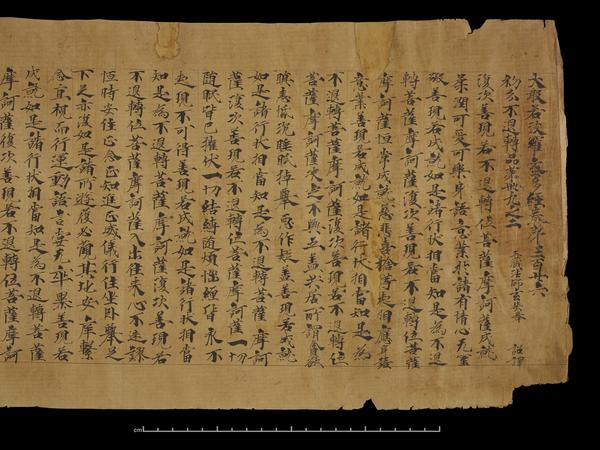 大般若波羅蜜多經卷第三百廿六
初分不退轉品第卌九之二 三藏法師玄奘奉 詔譯
復次善現若不退轉位菩薩摩訶薩成就
柔潤可愛可樂身語意業於諸有情心无罣
礙善現若成就如是諸行狀相當知是為不退
轉菩薩摩訶薩復次善現若不退轉位菩薩
摩訶薩恒常成就慈悲喜捨等起相應身語
意業善現若成就如是諸行狀相當知是為
不退轉菩薩摩訶薩復次善現若不退轉位
菩薩摩訶薩决定不與五蓋共居所謂貪欲
瞋恚惛沉睡眠掉舉惡作疑善現若成就
如是諸行狀相當知是為不退轉菩薩摩訶
薩復次善現若不退轉位菩薩摩訶薩一切
随眠皆已摧伏一切結縛随煩惱纏皆永不
起現不可得善現若成就如是諸行狀相當
知是為不退轉菩薩摩訶薩復次善現若
不退轉位菩薩摩訶薩入出往来心不迷謬
恒時安住正念正知進止威儀行住坐卧舉足
下足亦復如是諸所遊履必觀其地安庠繫
念直視而行運動語言甞无卒暴善現若
成就如是諸行狀相當知是為不退轉菩薩
摩訶薩復次善現若不退轉位菩薩摩訶
cm